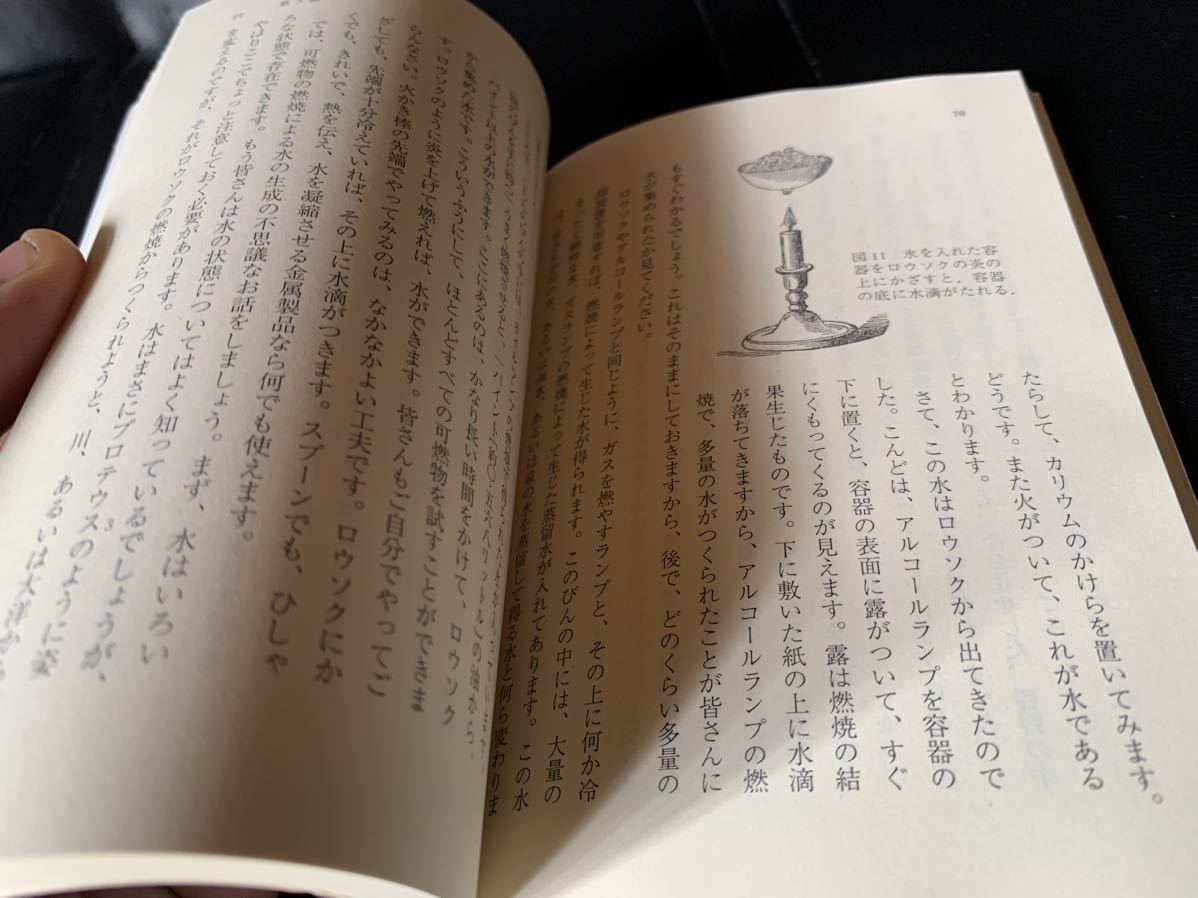 76
図11 氷を入れた容
器をロウソクの炎の
上にかざすと,容器
の底に水滴がたれる.
たらして、カリウムのかけらを置いてみます。
どうです。また火がついて、これが水である
とわかります。
さて、この水はロウソクから出てきたので
した。こんどは、アルコールランプを容器の
下に置くと、容器の表面に露がついて、すぐ
にくもってくるのが見えます。露は燃焼の結
果生じたものです。下に敷いた紙の上に水滴
が落ちてきますから、アルコールランプの燃
焼で、多量の水がつくられたことが皆さんに
もすぐわかるでしょう。これはそのままにしておきますから、後で、どのくらい多量の
水が集められたか見てください。
ロウソクやアルコールランプと同じように、ガスを燃やすランプと、その上に何か冷
却装置を用意すれば、燃焼によって生じた水が得られます。このびんの中には、大量の
ガスランプの燃焼によって生じた蒸留水が入れてあります。この水
あるいは海水、あるいは泉の水を蒸留して得る水と何ら変わりま
から集めた水です。こういうふうにして、ほとんどすべての可燃物を試すことができま
す。ロウソクのように炎を上げて燃えれば、水ができます。皆さんもご自分でやってご
らんなさい。火かき棒の先端でやってみるのは、なかなかよい工夫です。ロウソクにか
ざしても、先端が十分冷えていれば、その上に水滴がつきます。スプーンでも、ひしゃ
くでも、きれいで、熱を伝え、水を凝縮させる金属製品なら何でも使えます。
では、可燃物の燃焼による水の生成の不思議なお話をしましょう。まず、水はいろい
ろな状態で存在できます。もう皆さんは水の状態についてはよく知っているでしょうが、
やはりここでちょっと注意しておく必要があります。水はまさにプロテウスのように姿
3
を変えるのですが、それがロウソクの燃焼からつくられようと、川、あるいは大洋から